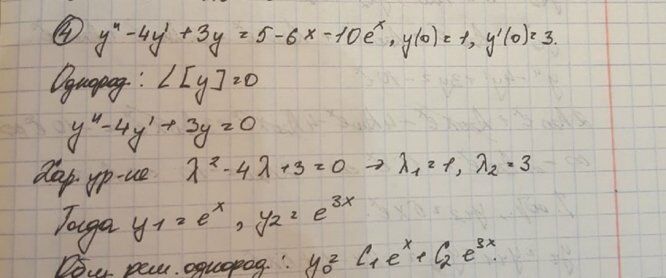 ④ y" - 4y' + 3y = 5 - 6x - 10eˣ, y(0) = 1, y'(0) = 3.
Однород.: L[y] = 0
y" - 4y' + 3y = 0
Хар. ур-ие λ² - 4λ + 3 = 0 → λ₁ = 1, λ₂ = 3
Тогда y₁ = eˣ, y₂ = e³ˣ
Общ. реш. однород.: y₀ = C₁eˣ + C₂e³ˣ.